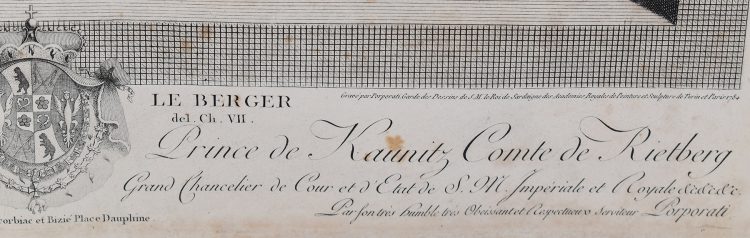 Gravé par Porporati Garde des Dessins de S. M. le Roi de Sardaigne des Academies Royales de Peinture et Sculpture de Turin et Paris 1784
LE BERGER
del. Ch. VII.
Prince de Kaunitz Comte de Rietberg
Grand Chancelier de Cour et d'Etat de S. M. Impériale et Royale &c &c &c.
Par son très humble très Obeissant et Respectueux Serviteur Porporati
corbiac et Bizié Place Dauphine